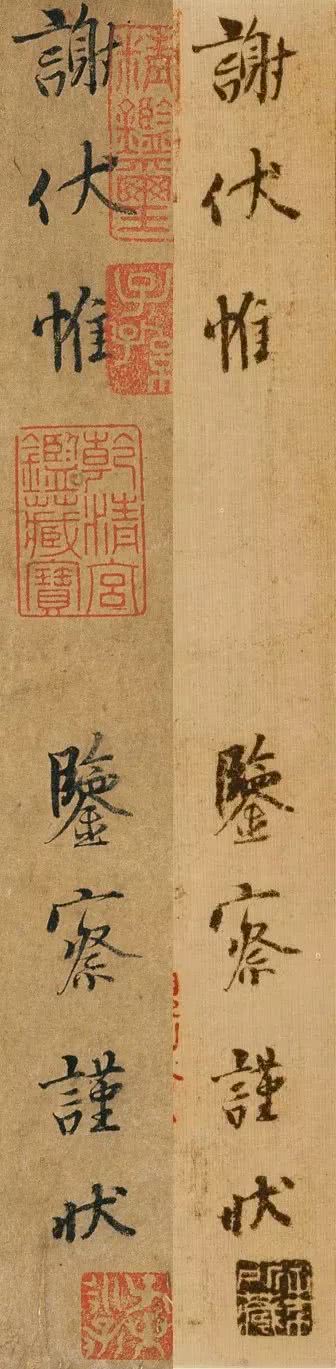 謝伏惟
鑒察謹狀
謝伏惟
鑒察謹狀
精鑑璽
子孫
乾清宮
鑑藏寶